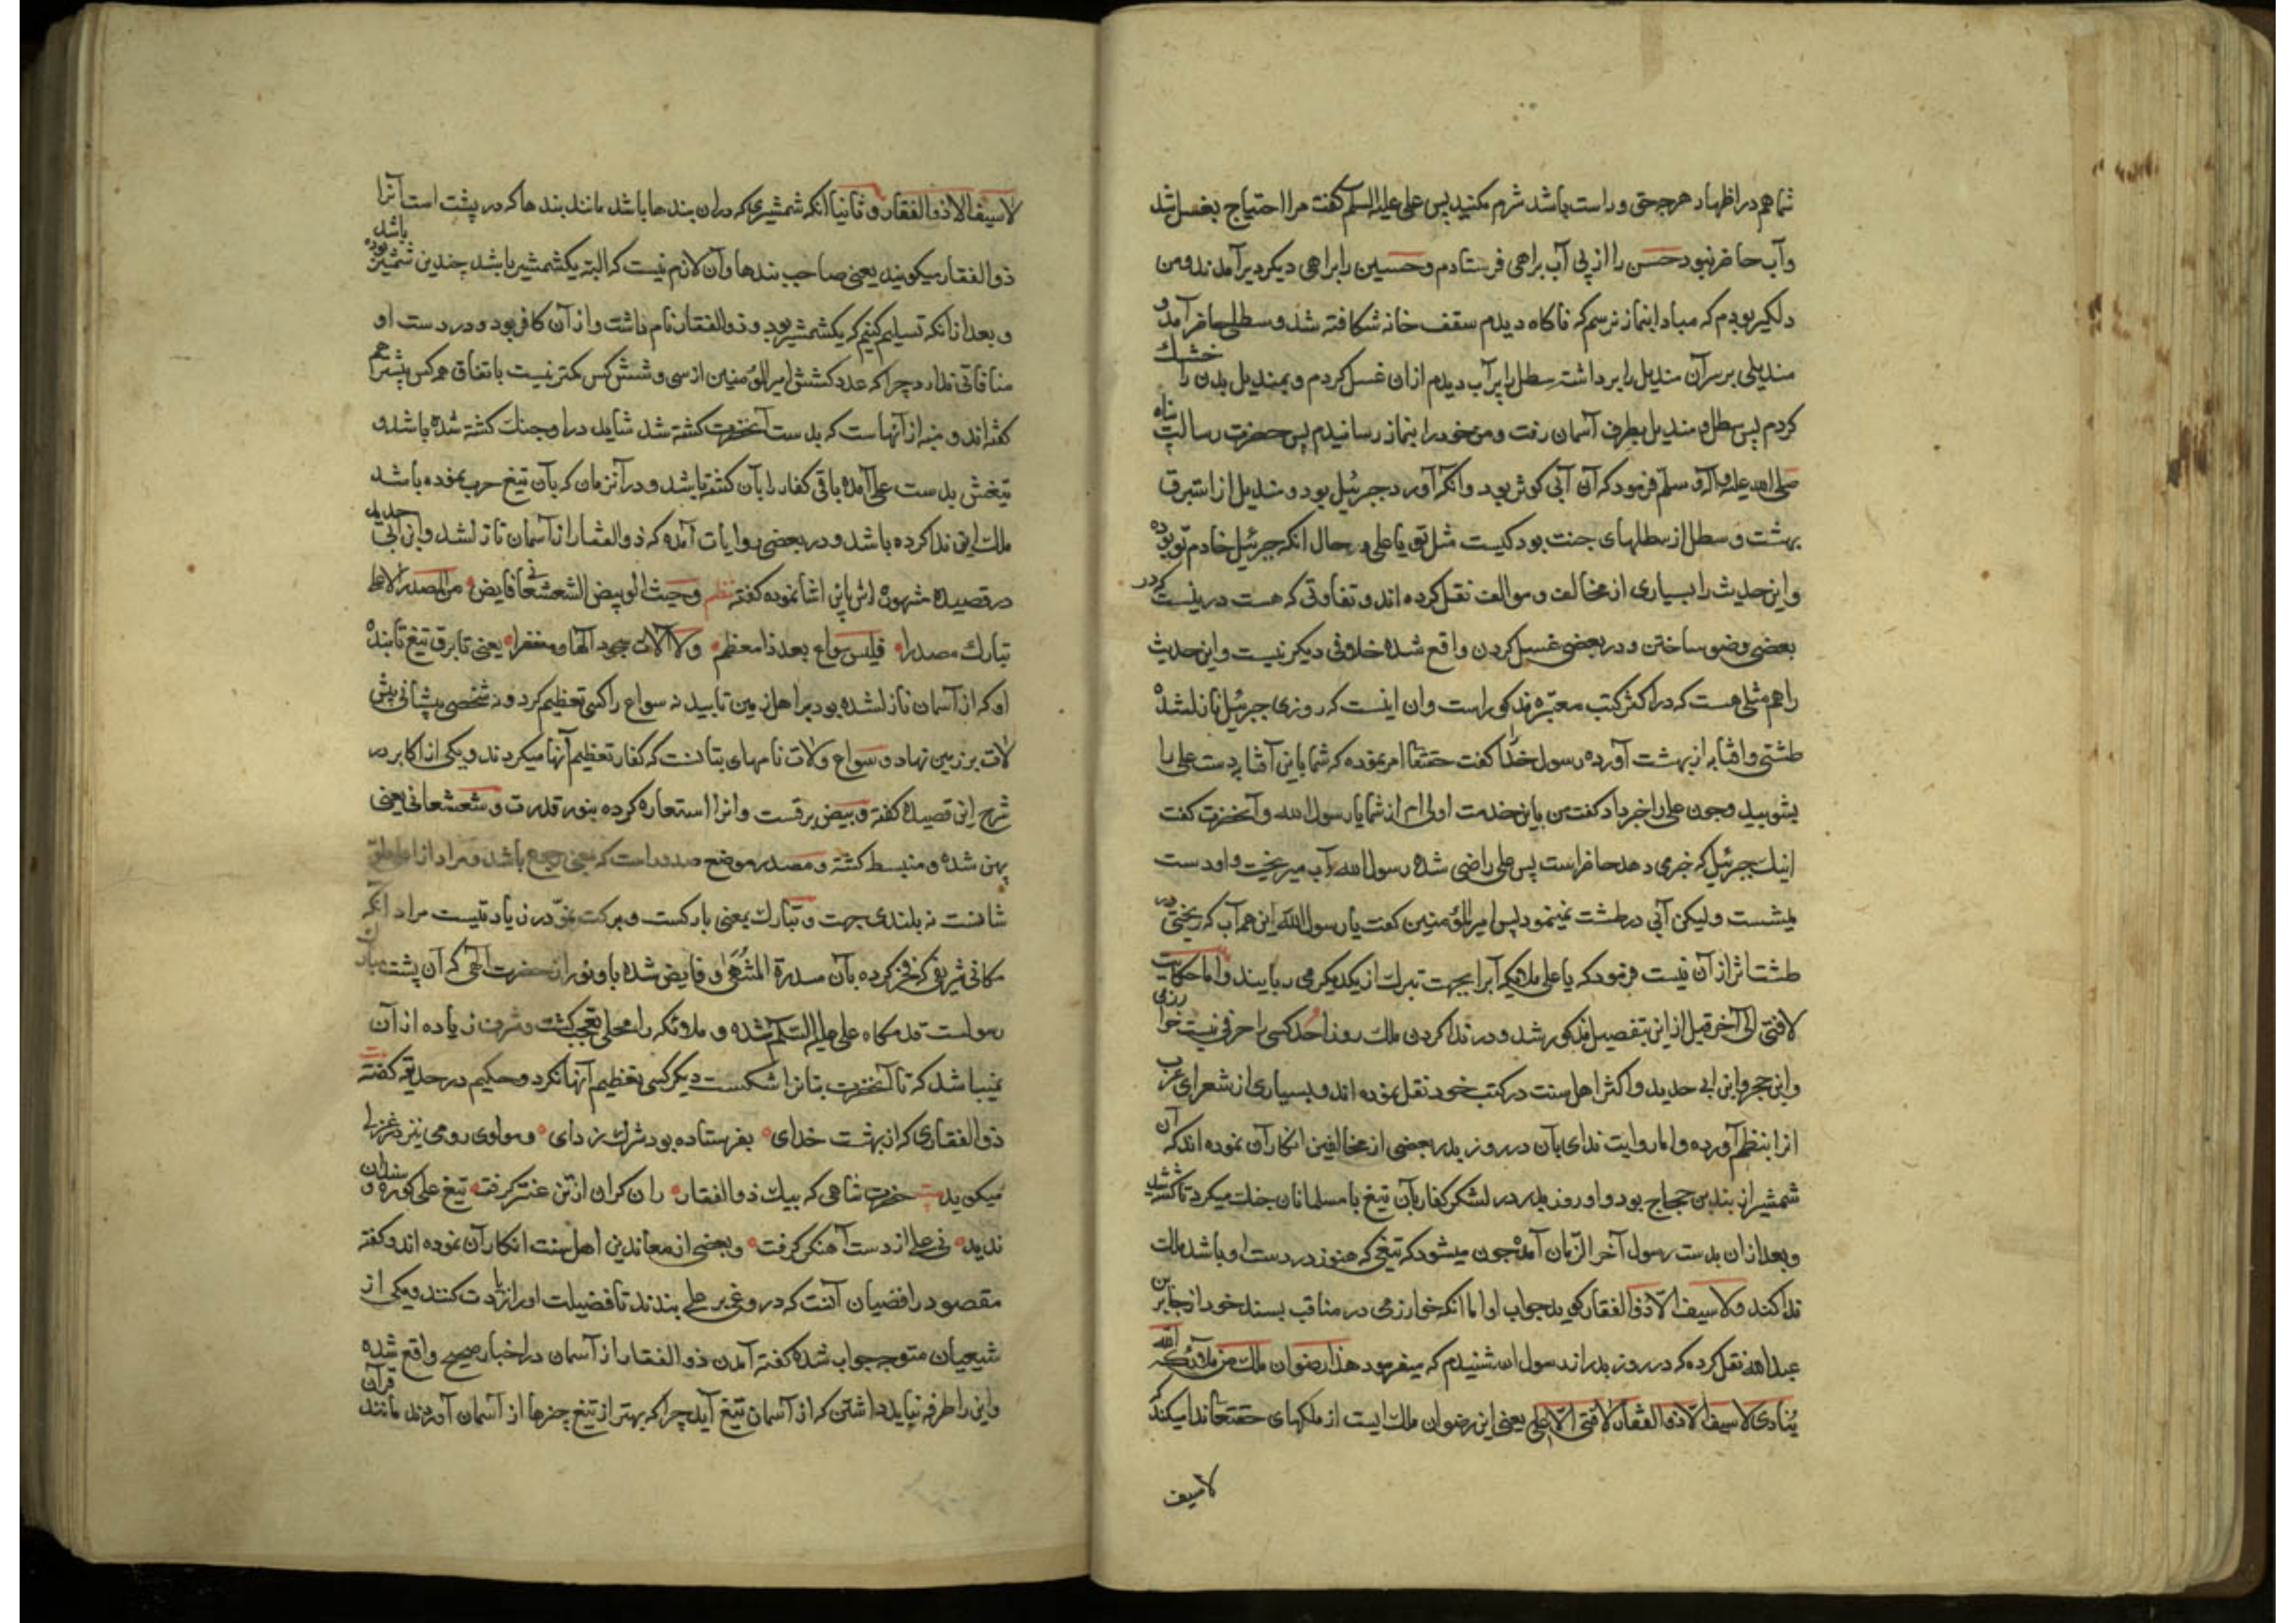 شما هم در اظهار هر چه حق و راست باشد شرم مکنید پس علی علیه السلم گفت مرا احتیاج بغسل شد
وآب حاضر نبود حسن را از پی آب براهی فرستادم وحسین را براهی دیگر دیر آمدند ومن
دلگیر بودم که مبادا بنماز نرسم که ناگاه دیدم سقف خانه شکافته شد و سطلی حاضر آمد و
مندیلی بر سر آن مندیل را برداشته سطل را پر آب دیدم از ان غسل کردم و بمندیل بدن را خشک
کردم پس سطل و مندیل بطرف آسمان رفت ومن خود را بنماز رسانیدم پس حضرت رسالت پناه
صلی الله علیه وآله وسلم فرمود که آن آبی کوثر بود وآنکه آورد جبرئیل بود و مندیل از استبرق
بهشت و سطل از سطلهای جنت بود کیست مثل تو یا علی و حال انکه جبرئیل خادم تو بوده
و این حدیث را بسیاری از مخالف و موالف نقل کرده اند و تفاوتی که هست درینست که در
بعضی وضو ساختن و در بعضی غسل کردن واقع شده خلافی دیگر نیست و این حدیث
را هم مثلی هست که در اکثر کتب معتبره مذکور است وان اینست که روزی جبرئیل نازلشده
طشتی وافتابه از بهشت آورده رسول خدا را گفت حقتعا امر نموده که شما باین آفتابه دست علی را
بشویید وچون علی را خبر داد گفت من باین خدمت اولی ام از شما یا رسول الله وآنحضرت گفت
اینک جبرئیل که خبر می دهد حاضر است پس علی راضی شده رسول الله آب میریخت و او دست
میشست ولیکن آبی در طشت نمینمود پس امیر المؤمنین گفت یا رسول الله این هم آب که ریختی در
طشت اثر از آن نیست فرمود که یا علی ملائکه آنرا بجهت تبرک از یکدیگر می ربایند واما حکایت
لافتی الی آخر قبل از این بتفصیل مذکور شد و در ندا کردن ملک روز احد کسی را حرفی نیست خوارزمی
وابن حجر وابن ابی حدید و اکثر اهل سنت در کتب خود نقل نموده اند و بسیاری از شعرای عرب
انرا بنظم آورده و اما روایت ندای بآن در روز بدر بعضی از مخالفین انکار آن نموده اند که آن
شمشیر از بنه بن حجاج بود و او روز بدر در لشکر کفار بآن تیغ با مسلمانان جنگ میکرد تا کشته شد
وبعد از ان بدست رسول آخر الزمان آمده چون میشود که تیغی که هنوز در دست او باشد ملک
ندا کند ولا سیف الا ذو الفقار گوید جواب اولا انکه خوارزمی در مناقب بسند خود از جابر بن
عبدالله نقل کرده که در روز بدر از رسول الله شنیدم که میفرمود هذا رضوان ملک من ملائکة الله
ینادی لا سیف الا ذو الفقار لا فتی الا علی یعنی این رضوان ملک ایست از ملکهای حقتعا ندا میکند که
لا سیف
لا سیف الا ذو الفقار و ثانیا انکه شمشیری که دران بندها باشد مانند بندها که در پشت است آنرا
ذو الفقار میگویند یعنی صاحب بندها وآن لازم نیست که البته یکشمشیر باشد چندین شمشیر بوده باشد
و بعد از انکه تسلیم کنیم که یکشمشیر بود و ذو الفقار نام داشت و از آن کافر بود و در دست او
منافاتی ندارد چرا که عدد کشش امیر المؤمنین از سی و شش کس کمتر نیست باتفاق هم کس بیشتر هم
گفته اند و منبه از آنهاست که بدست آنحضرت کشته شد شاید در اول جنگ کشته شده باشد و
تیغش بدست علی آمده باقی کفار را بآن کشته باشد و در آنزمان که بآن تیغ حرب نموده باشد
ملک این ندا کرده باشد و در بعضی روایات آمده که ذو الفقار از آسمان نازلشد وابن ابی حدید
در قصیده مشهوره اش باین اشا نموده گفته نظم وحیث الومیض الشعشعانی فایض من المصدر الاعلی
تبارک مصدرا فلیس سواع بعد ذا معظم ولا اللات مسجود الها ومعفرا یعنی تا برق تیغ تابنده
او که از آسمان نازلشده بود بر اهل زمین تابید نه سواع را کسی تعظیم کرد و نه شخصی پیشانی پیش
لات بر زمین نهاد و سواع ولات نامهای بتانست که کفار تعظیم آنها میکردند و یکی از اکابر در
شرح این قصیده گفته ومیض برقست وانرا استعاره کرده بنور قدرت و شعشعانی یعنی
پهن شده و منبسط گشته و مصدر موضع صدور است که بمعنی رجوع باشد و مراد از اعلی علو
شانست نه بلندی جهت و تبارک بمعنی بارکست و برکت نمو در زیادتیست مراد انکه
مکانی شریفی که فخر کرده بآن سدرة المنتهی و فایض شده باو نور ان حضرت الهی که آن پشت مبارک
رسولست قدمگاه علی علیه السلم شده و ملائکه را محل تعجب گشت و شرف زیاده از آن
نمیباشد که تا آنحضرت بتانرا شکست دیگر کسی تعظیم آنها نکرد و حکیم در حدیقه گفته بیت
ذو الفقاری که از بهشت خدای بفرستاده بود شرک زدای و مولوی رومی نیز در غزلی
میگوید بیت حضرت شاهی که بیک ذو الفقار ران گران از تن عنتر گرفت تیغ علی کوره و سندان
ندید نی علی از دست آهنگر گرفت و بعضی از معاندین اهل سنت انکار آن نموده اند و گفته
مقصود رافضیان آنست که دروغی بر علی بندند تا فضیلت او را زیادت کنند و یکی از
شیعیان متوجه جواب شده گفته آمدن ذو الفقار از آسمان در اخبار صحیح واقع شده
واین را طرفه نباید داشتن که از آسمان تیغ آید چرا که بهتر از تیغ چیزها از آسمان آوردند مانند قرآن